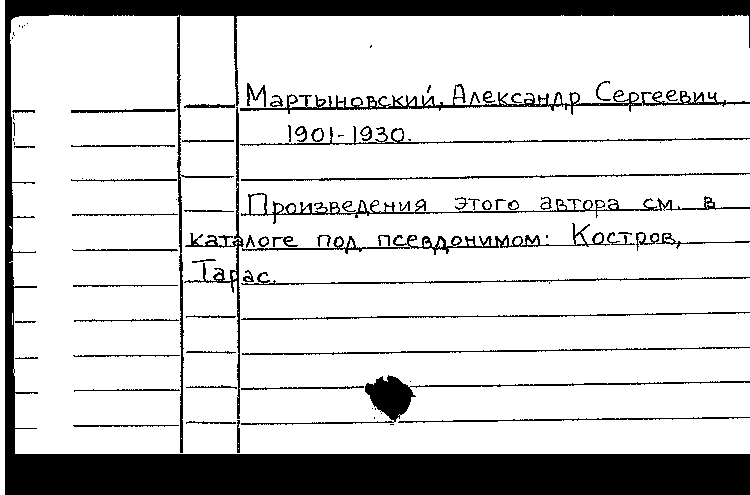 Мартыновский, Александр Сергеевич,
1901-1930.
Произведения этого автора см. в
каталоге под псевдонимом: Костров,
Тарас.